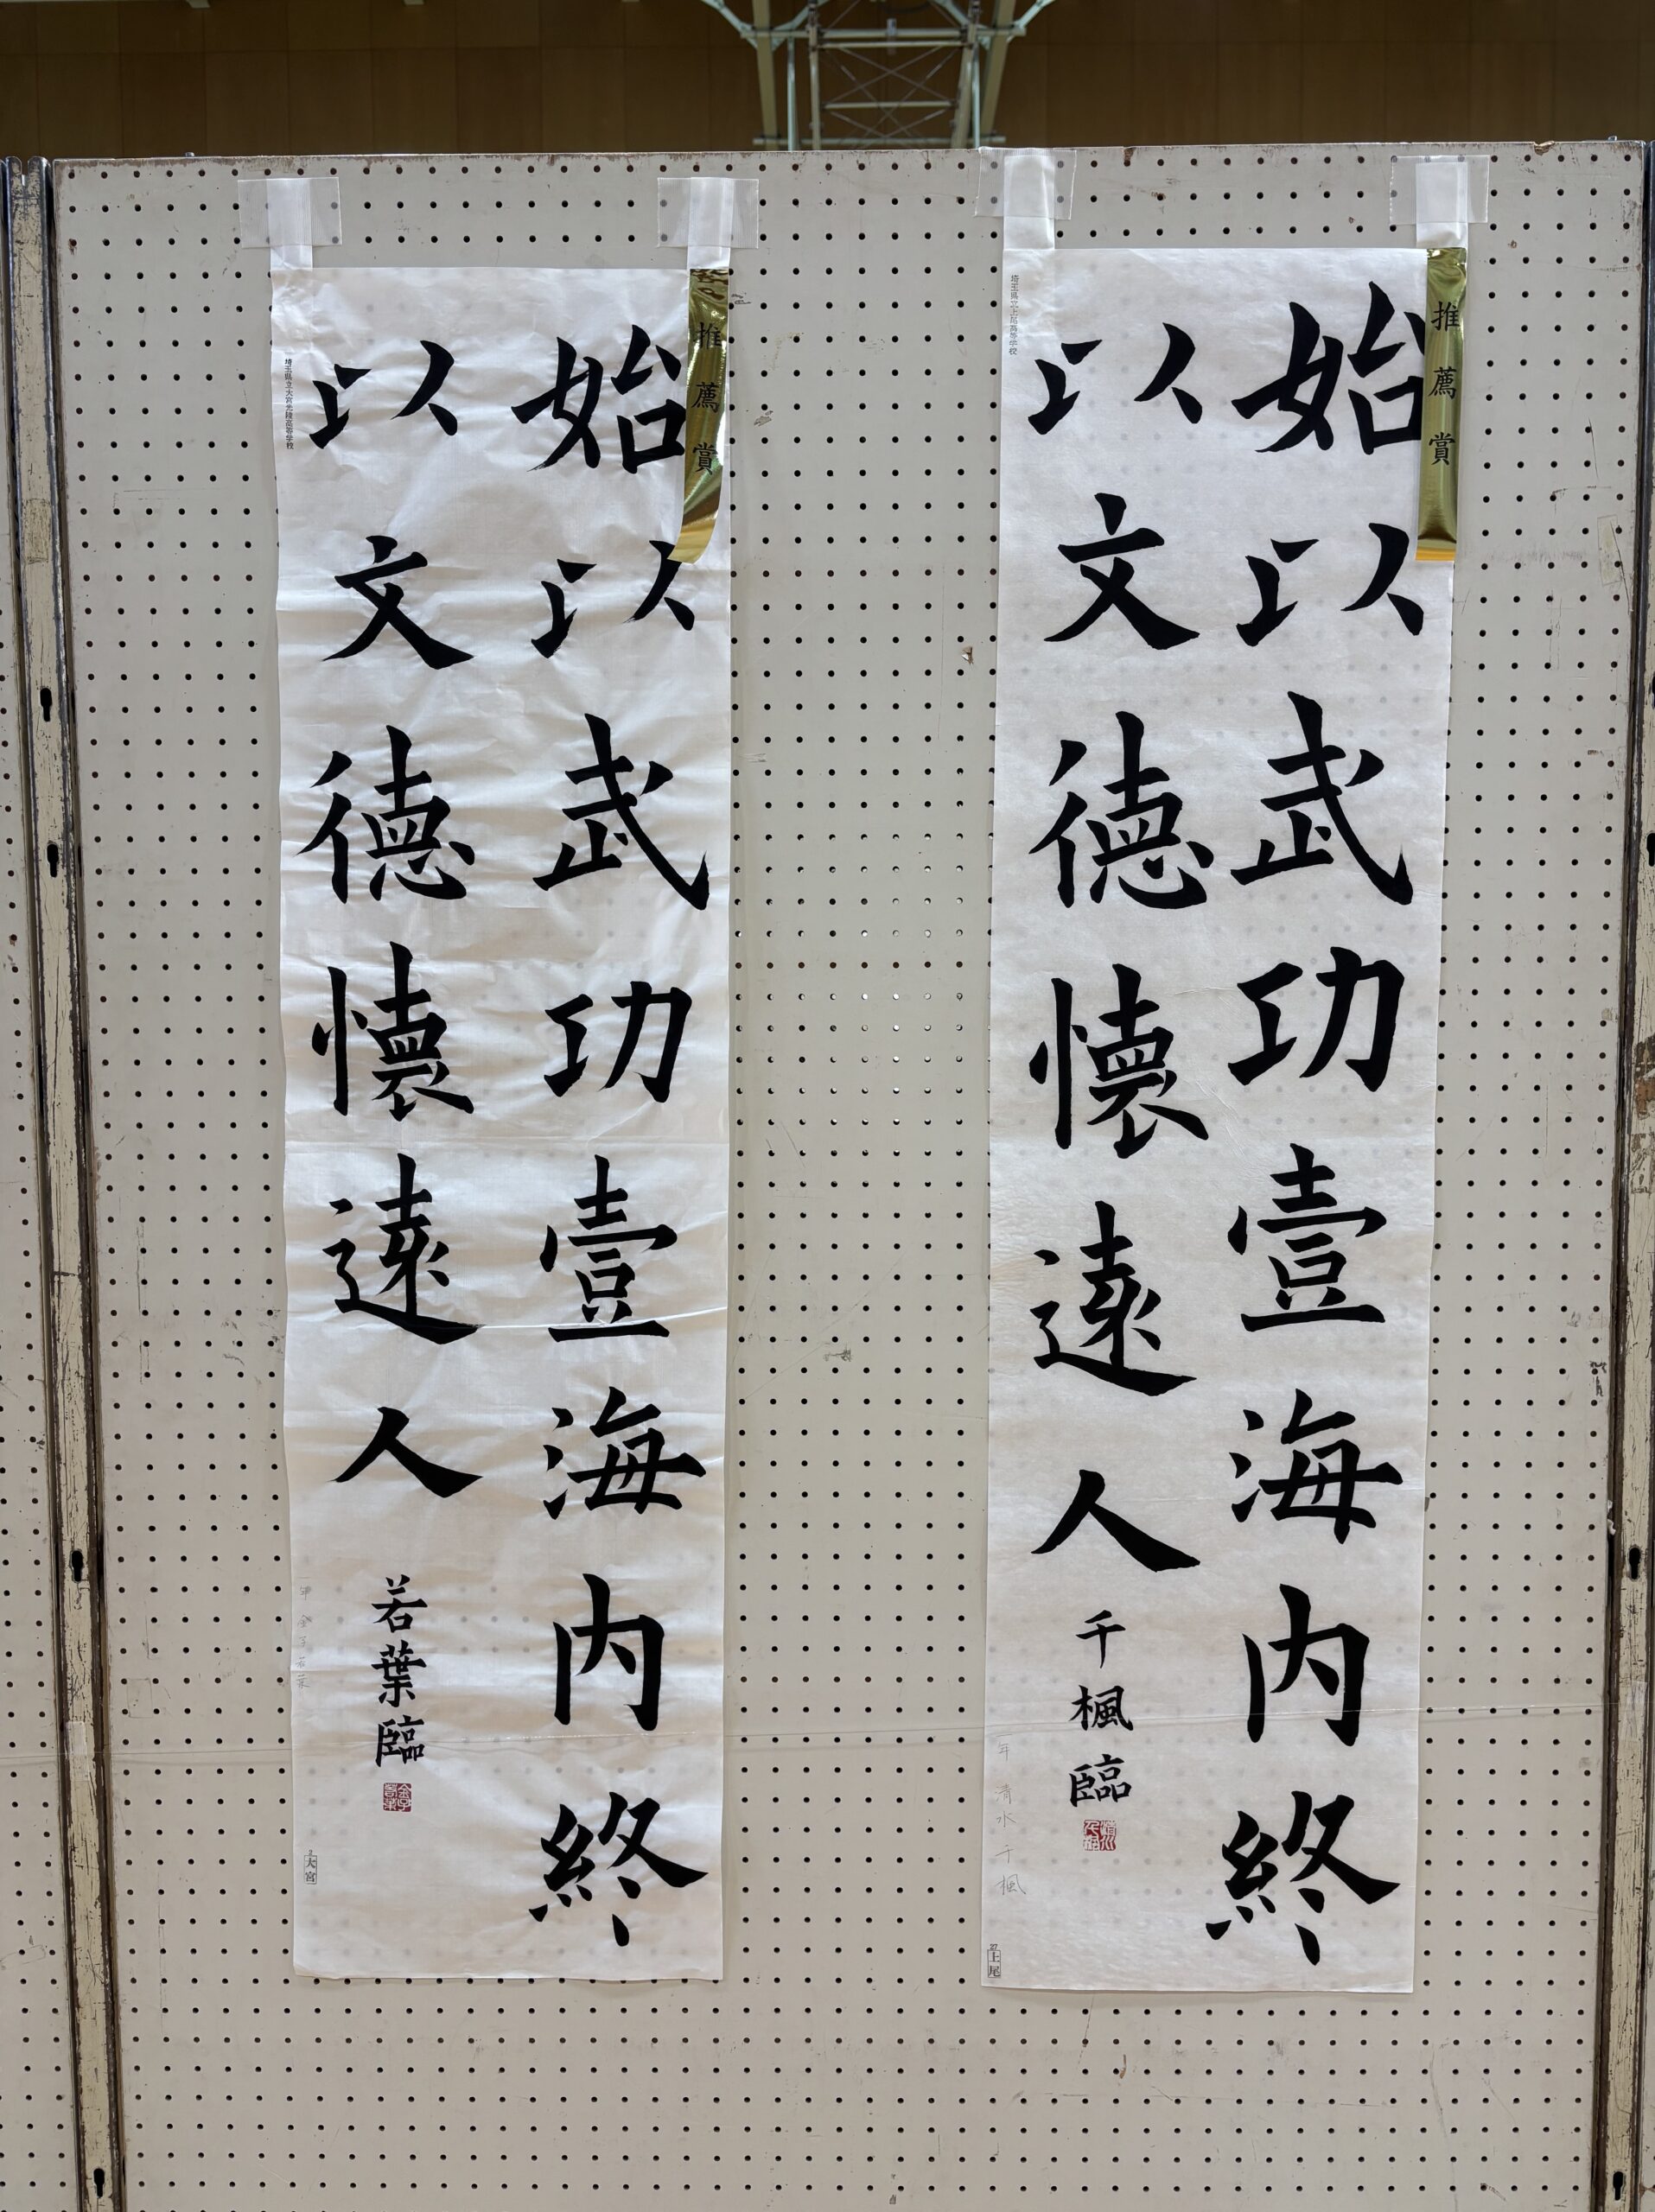 推薦賞
始以武功壹海内終
以文德懷遠人
千楓臨
埼玉県立上尾高等学校
年 清水 千楓
上尾
推薦賞
始以武功壹海内終
以文德懷遠人
若葉臨
埼玉県立大宮光陵高等学校
一年 金子若葉
大宮